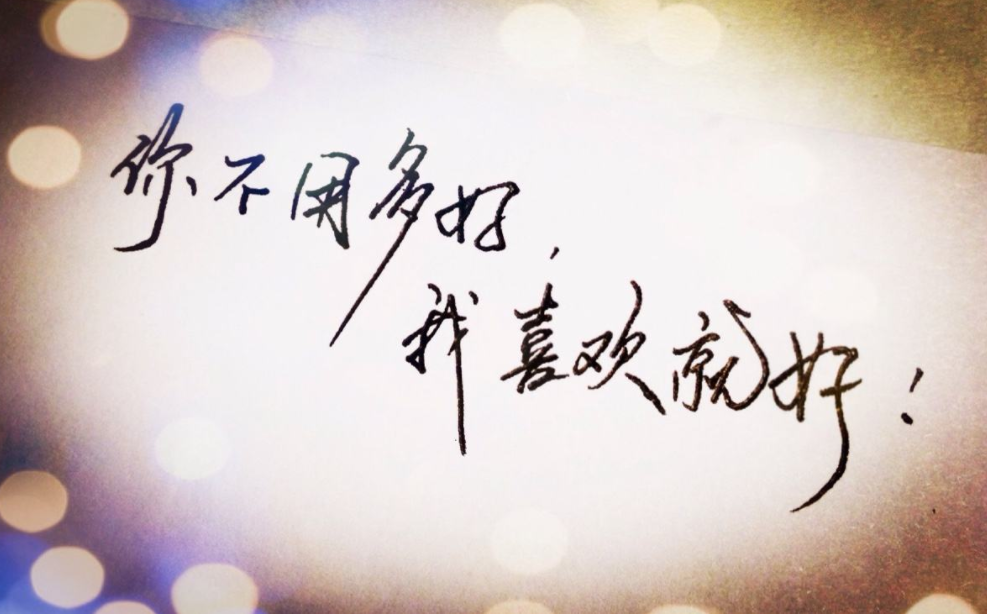 你不用多好，
我喜欢就好！